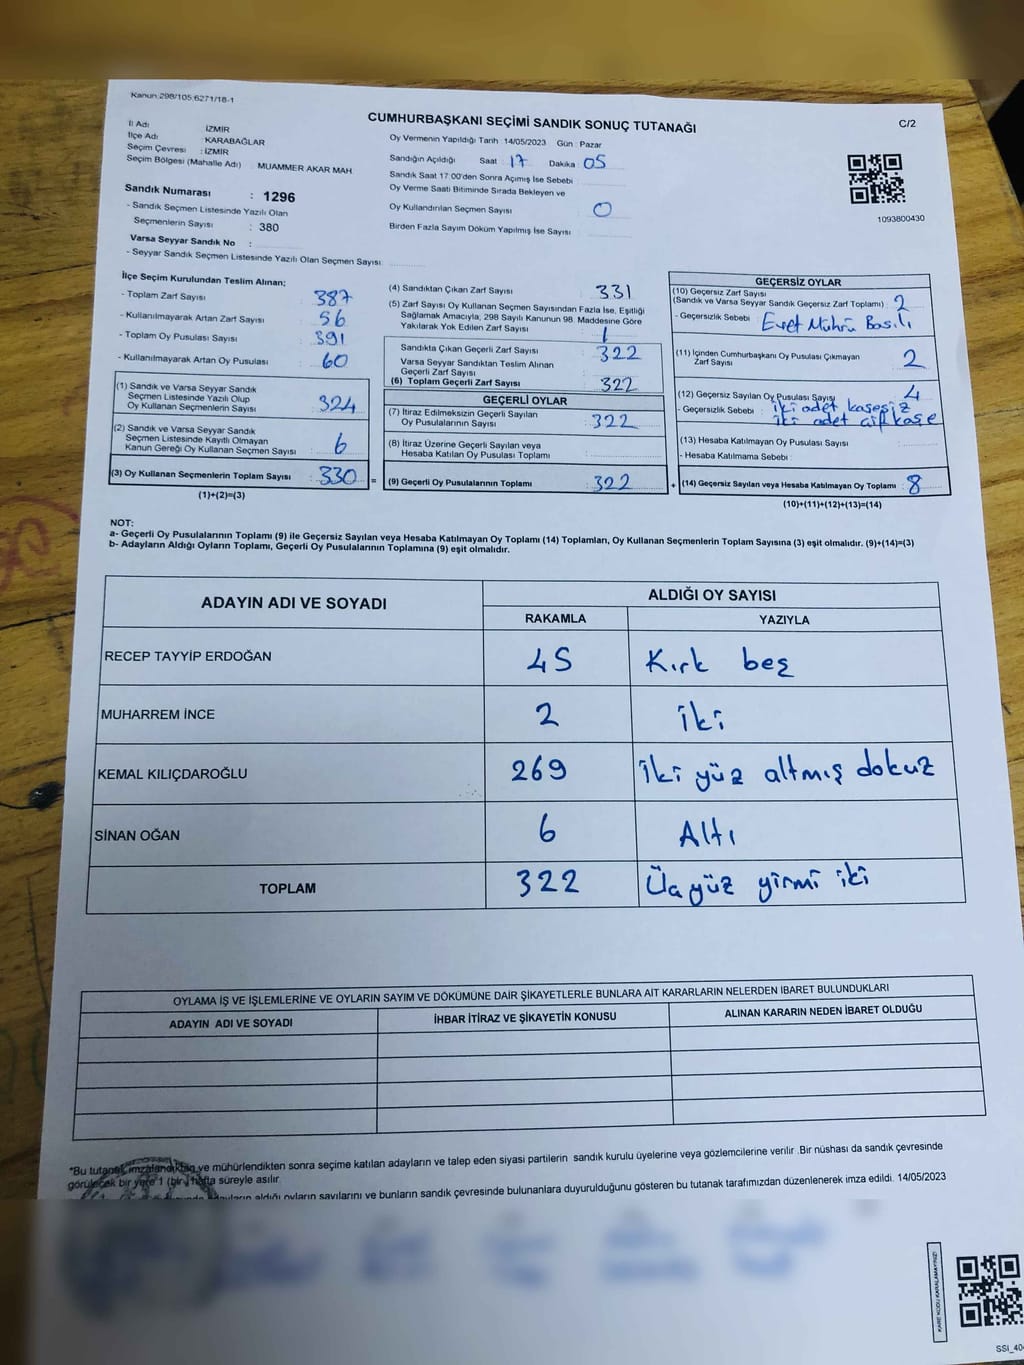 Kanun:298/105,6271/18-1
CUMHURBAŞKANI SEÇİMİ SANDIK SONUÇ TUTANAĞI
C/2
İl Adı : İZMİR
İlçe Adı : KARABAĞLAR
Seçim Çevresi : İZMİR
Seçim Bölgesi (Mahalle Adı) MUAMMER AKAR MAH
Sandık Numarası : 1296
- Sandık Seçmen Listesinde Yazılı Olan
Seçmenlerin Sayısı : 380
Varsa Seyyar Sandık No :
- Seyyar Sandık Seçmen Listesinde Yazılı Olan Seçmen Sayısı:
Oy Vermenin Yapıldığı Tarih 14/05/2023 Gün : Pazar
Sandığın Açıldığı Saat : 17 Dakika 05
Sandık Saat 17:00'den Sonra Açımış İse Sebebi :
Oy Verme Saati Bitiminde Sırada Bekleyen ve
Oy Kullandırılan Seçmen Sayısı : 0
Birden Fazla Sayım Döküm Yapılmış İse Sayısı :
1093800430
İlçe Seçim Kurulundan Teslim Alınan;
- Toplam Zarf Sayısı : 387
- Kullanılmayarak Artan Zarf Sayısı : 56
- Toplam Oy Pusulası Sayısı : 391
- Kullanılmayarak Artan Oy Pusulası : 60
(1) Sandık ve Varsa Seyyar Sandık
Seçmen Listesinde Yazılı Olup
Oy Kullanan Seçmenlerin Sayısı : 324
(2) Sandık ve Varsa Seyyar Sandık
Seçmen Listesinde Kayıtlı Olmayan
Kanun Gereği Oy Kullanan Seçmen Sayısı : 6
(3) Oy Kullanan Seçmenlerin Toplam Sayısı : 330 =
(1)+(2)=(3)
(4) Sandıktan Çıkan Zarf Sayısı : 331
(5) Zarf Sayısı Oy Kullanan Seçmen Sayısından Fazla İse, Eşitliği
Sağlamak Amacıyla, 298 Sayılı Kanunun 98. Maddesine Göre
Yakılarak Yok Edilen Zarf Sayısı : 1
Sandıkta Çıkan Geçerli Zarf Sayısı : 322
Varsa Seyyar Sandıktan Teslim Alınan
Geçerli Zarf Sayısı :
(6) Toplam Geçerli Zarf Sayısı : 322
GEÇERLİ OYLAR
(7) İtiraz Edilmeksizin Geçerli Sayılan
Oy Pusulalarının Sayısı : 322
(8) İtiraz Üzerine Geçerli Sayılan veya
Hesaba Katılan Oy Pusulası Toplamı :
(9) Geçerli Oy Pusulalarının Toplamı : 322 +
GEÇERSİZ OYLAR
(10) Geçersiz Zarf Sayısı
(Sandık ve Varsa Seyyar Sandık Geçersiz Zarf Toplamı) : 2
- Geçersizlik Sebebi : Evet Mührü Basılı
(11) İçinden Cumhurbaşkanı Oy Pusulası Çıkmayan
Zarf Sayısı : 2
(12) Geçersiz Sayılan Oy Pusulası Sayısı : 4
- Geçersizlik Sebebi : iki adet kaşesiz
iki adet çift kaşe
(13) Hesaba Katılmayan Oy Pusulası Sayısı :
- Hesaba Katılmama Sebebi :
(14) Geçersiz Sayılan veya Hesaba Katılmayan Oy Toplamı : 8
(10)+(11)+(12)+(13)=(14)
NOT:
a- Geçerli Oy Pusulalarının Toplamı (9) ile Geçersiz Sayılan veya Hesaba Katılmayan Oy Toplamı (14) Toplamları, Oy Kullanan Seçmenlerin Toplam Sayısına (3) eşit olmalıdır. (9)+(14)=(3)
b- Adayların Aldığı Oyların Toplamı, Geçerli Oy Pusulalarının Toplamına (9) eşit olmalıdır.
ADAYIN ADI VE SOYADI
ALDIĞI OY SAYISI
RAKAMLA YAZIYLA
RECEP TAYYİP ERDOĞAN 45 Kırk beş
MUHARREM İNCE 2 iki
KEMAL KILIÇDAROĞLU 269 iki yüz altmış dokuz
SİNAN OĞAN 6 Altı
TOPLAM 322 Üç yüz yirmi iki
OYLAMA İŞ VE İŞLEMLERİNE VE OYLARIN SAYIM VE DÖKÜMÜNE DAİR ŞİKAYETLERLE BUNLARA AİT KARARLARIN NELERDEN İBARET BULUNDUKLARI
ADAYIN ADI VE SOYADI İHBAR İTİRAZ VE ŞİKAYETİN KONUSU ALINAN KARARIN NEDEN İBARET OLDUĞU
*Bu tutanak imzalandıktan ve mühürlendikten sonra seçime katılan adayların ve talep eden siyasi partilerin sandık kurulu üyelerine veya gözlemcilerine verilir .Bir nüshası da sandık çevresinde
görülecek bir yere 1 (bir) hafta süreyle asılır.
aldığı oyların sayılarını ve bunların sandık çevresinde bulunanlara duyurulduğunu gösteren bu tutanak tarafımızdan düzenlenerek imza edildi. 14/05/2023
KARE KODU KARALAMAYINIZ!